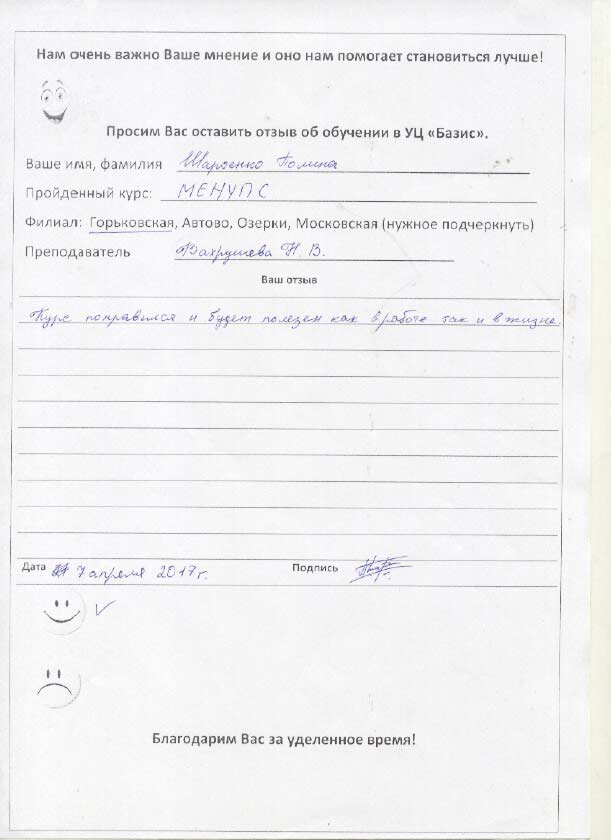 Нам очень важно Ваше мнение и оно нам помогает становиться лучше!
Просим Вас оставить отзыв об обучении в УЦ «Базис».
Ваше имя, фамилия Полина
Пройденный курс: МЕНУПС
Филиал: Горьковская, Автово, Озерки, Московская (нужное подчеркнуть)
Преподаватель Вахрушева Н. В.
Ваш отзыв
Курс понравился и будет полезен как в работе так и в жизне.
Дата 7 апреля 2017г. Подпись
Благодарим Вас за уделенное время!